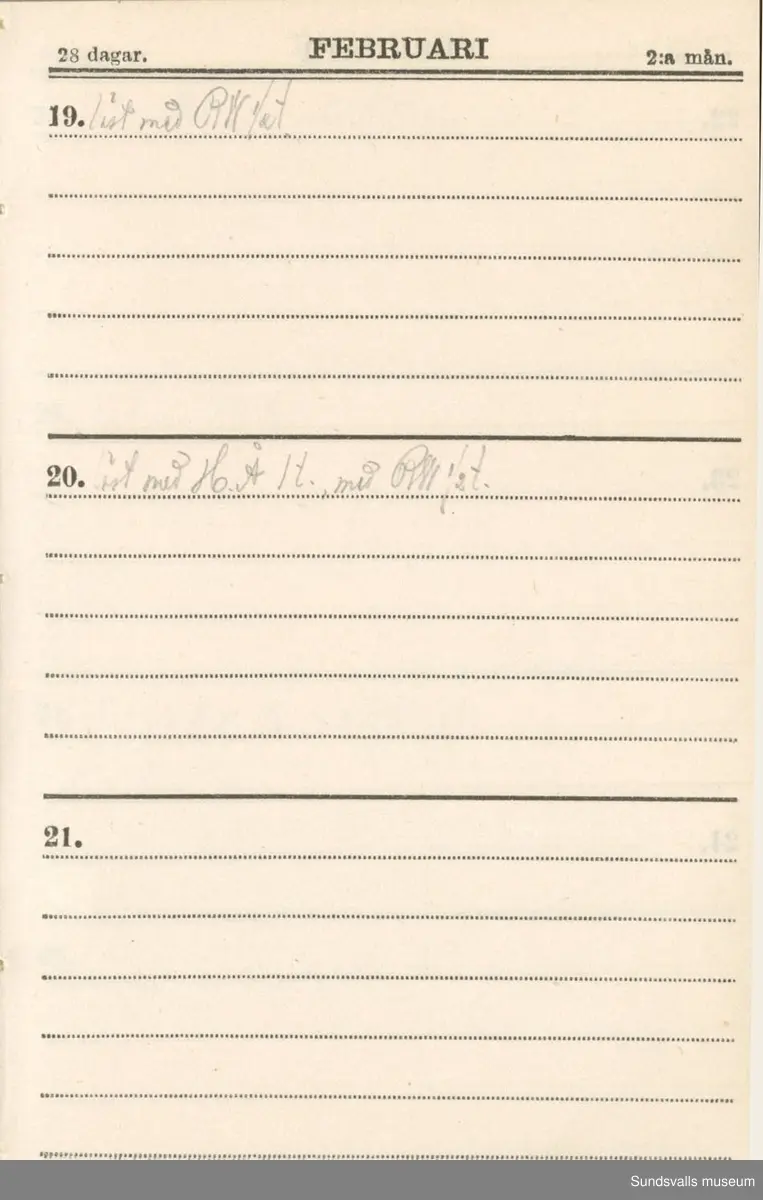 28 dagar. FEBRUARI 2:a mån.
19. läst med RW 1/2 t.
20. läst med H.Å 1 t., med RW 1/2 t.
21.
Sundsvalls museum